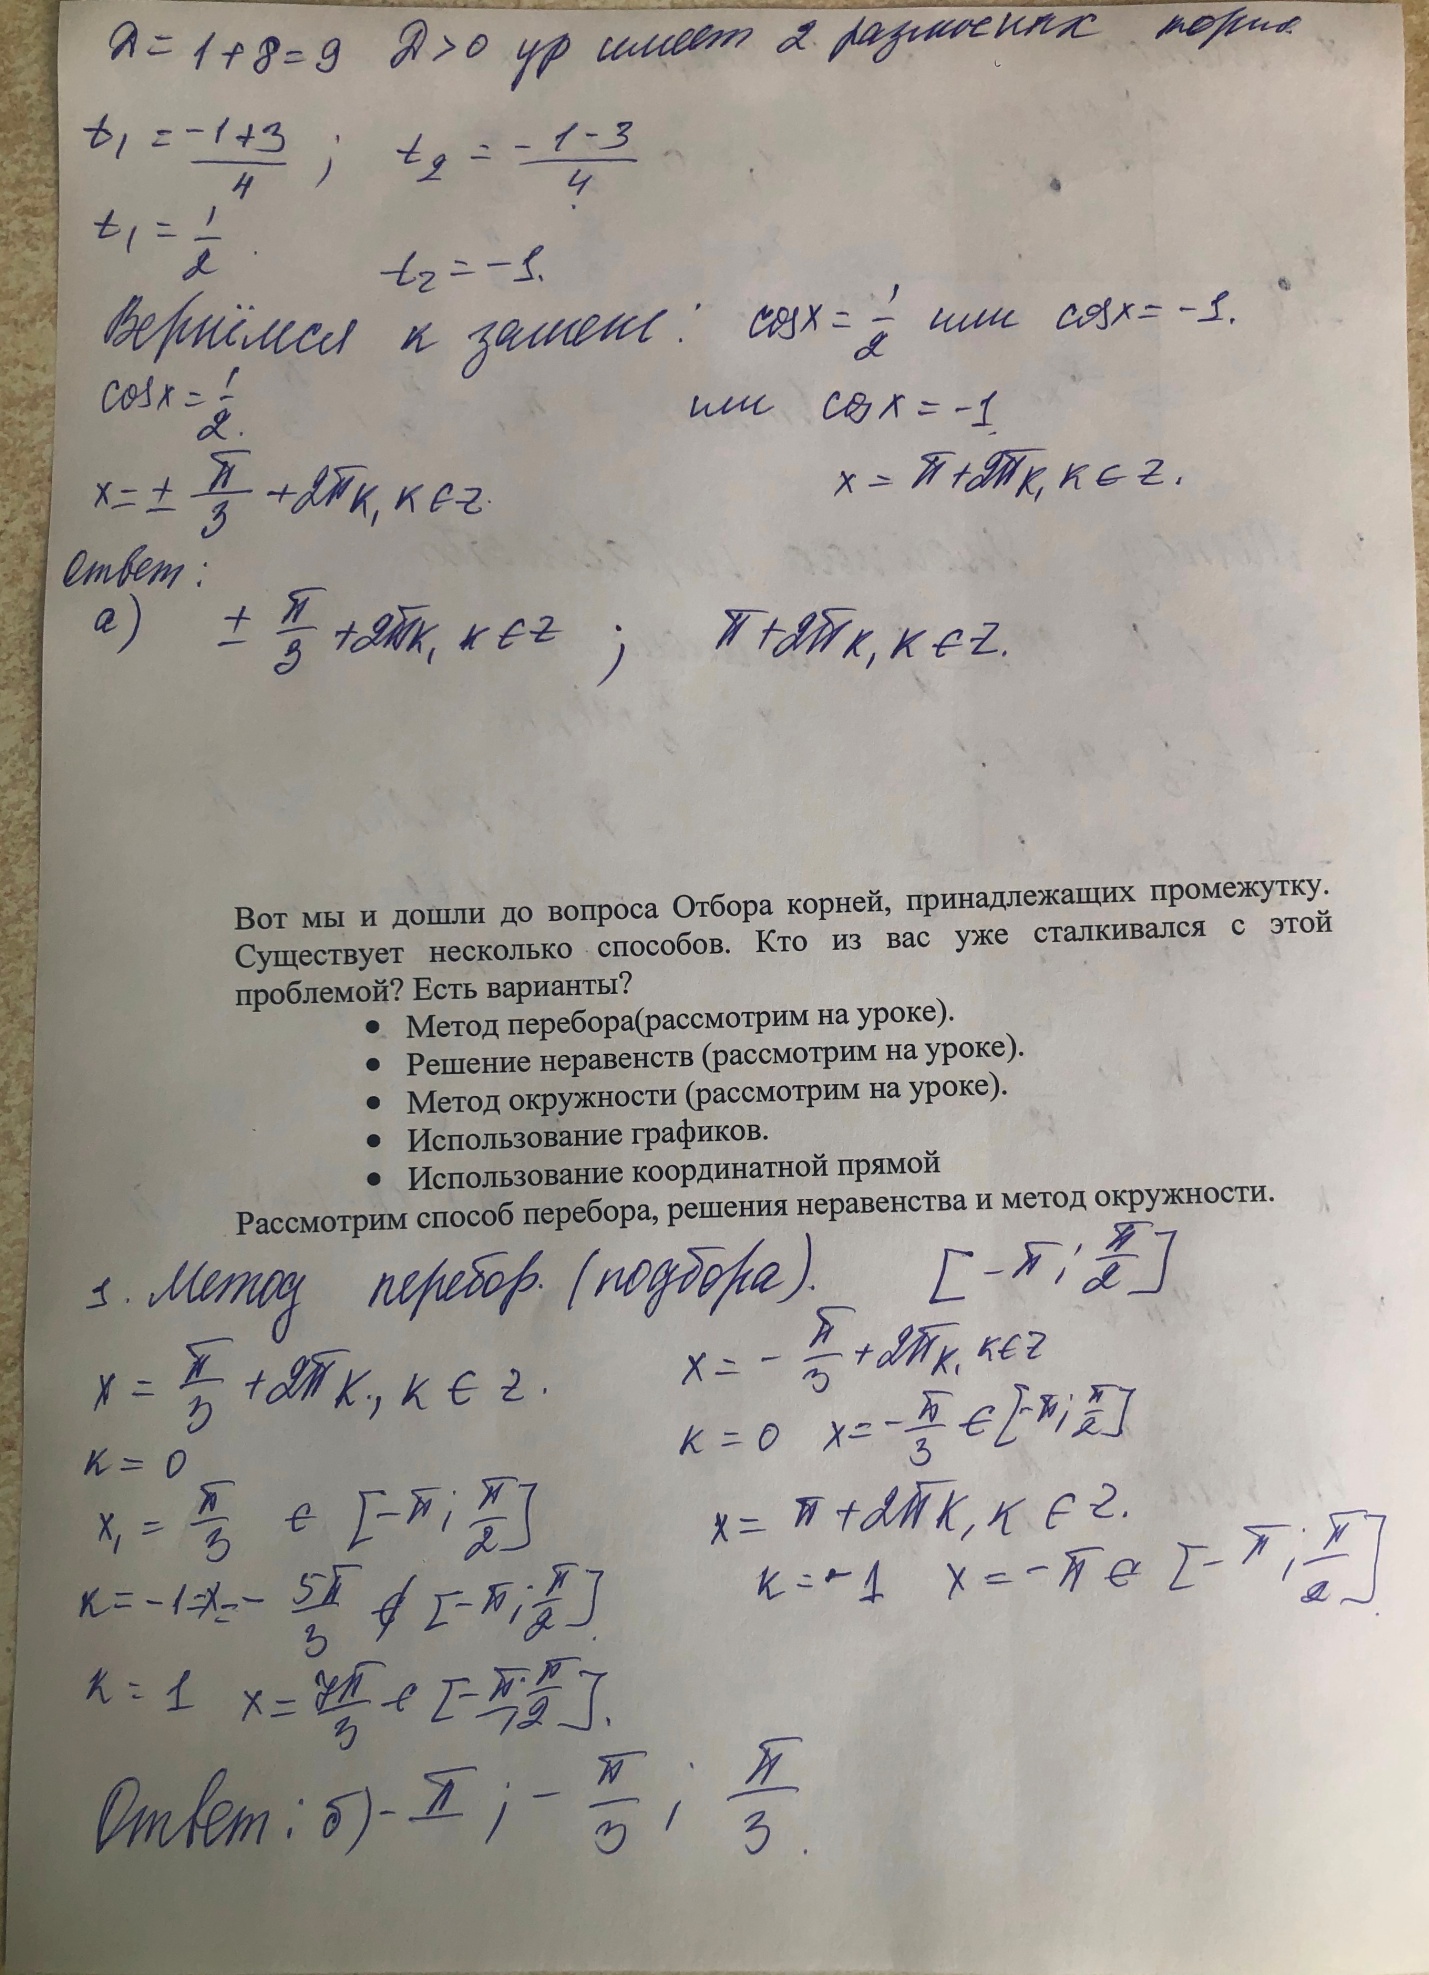 D = 1+8=9 D>0 ур имеет 2 различных корня.
t₁ = (-1+3)/4 ; t₂ = (-1-3)/4
t₁ = 1/2 t₂ = -1.
Вернёмся к замене: cosx = 1/2 или cosx = -1.
cosx = 1/2. или cosx = -1.
x = ± π/3 + 2πk, k ∈ Z. x = π + 2πk, k ∈ Z.
Ответ:
а) ± π/3 + 2πk, k ∈ Z ; π + 2πk, k ∈ Z.
Вот мы и дошли до вопроса Отбора корней, принадлежащих промежутку.
Существует несколько способов. Кто из вас уже сталкивался с этой
проблемой? Есть варианты?
• Метод перебора(рассмотрим на уроке).
• Решение неравенств (рассмотрим на уроке).
• Метод окружности (рассмотрим на уроке).
• Использование графиков.
• Использование координатной прямой
Рассмотрим способ перебора, решения неравенства и метод окружности.
1. Метод перебор. (подбора). [-π; π/2]
x = π/3 + 2πk, k ∈ Z.
k = 0
x₁ = π/3 ∈ [-π; π/2]
k = -1 x = - 5π/3 ∉ [-π; π/2].
k = 1 x = 7π/3 ∈ [-π; π/2].
x = - π/3 + 2πk, k∈Z
k = 0 x = - π/3 ∈ [-π; π/2]
x = π + 2πk, k ∈ Z.
k = -1 x = -π ∈ [-π; π/2].
Ответ: б) -π ; - π/3 ; π/3.